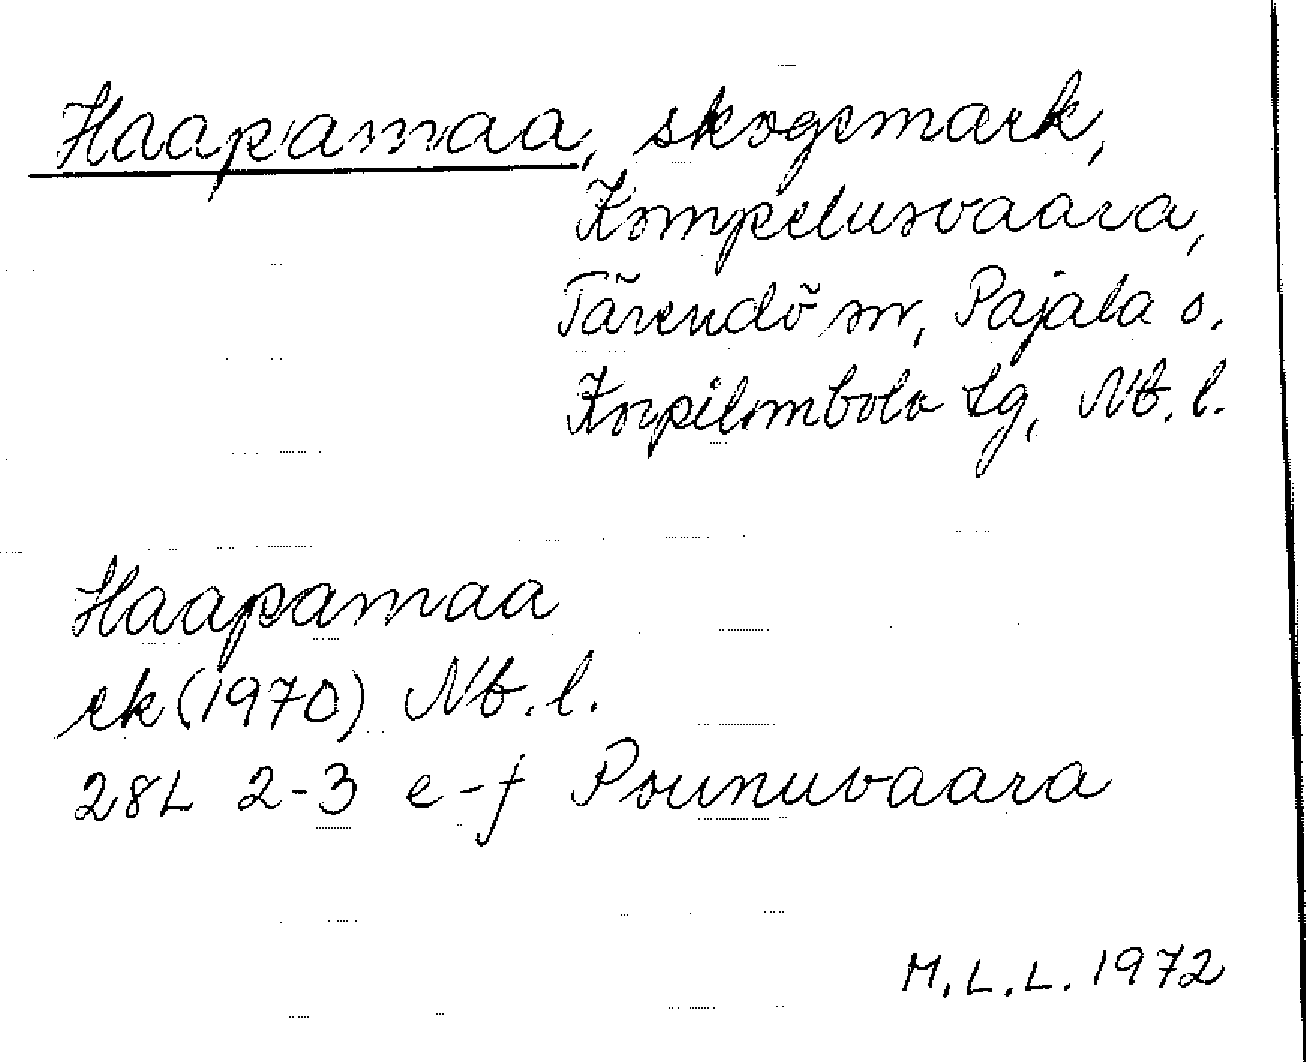 Haapamaa, skogsmark,
Kompelusvaara,
Tärendö sn, Pajala o.
Korpilombolo tg, Nb. l.
Haapamaa
ek (1970) Nb. l.
28L 2-3 e-f Pounuvaara
M.L.L. 1972